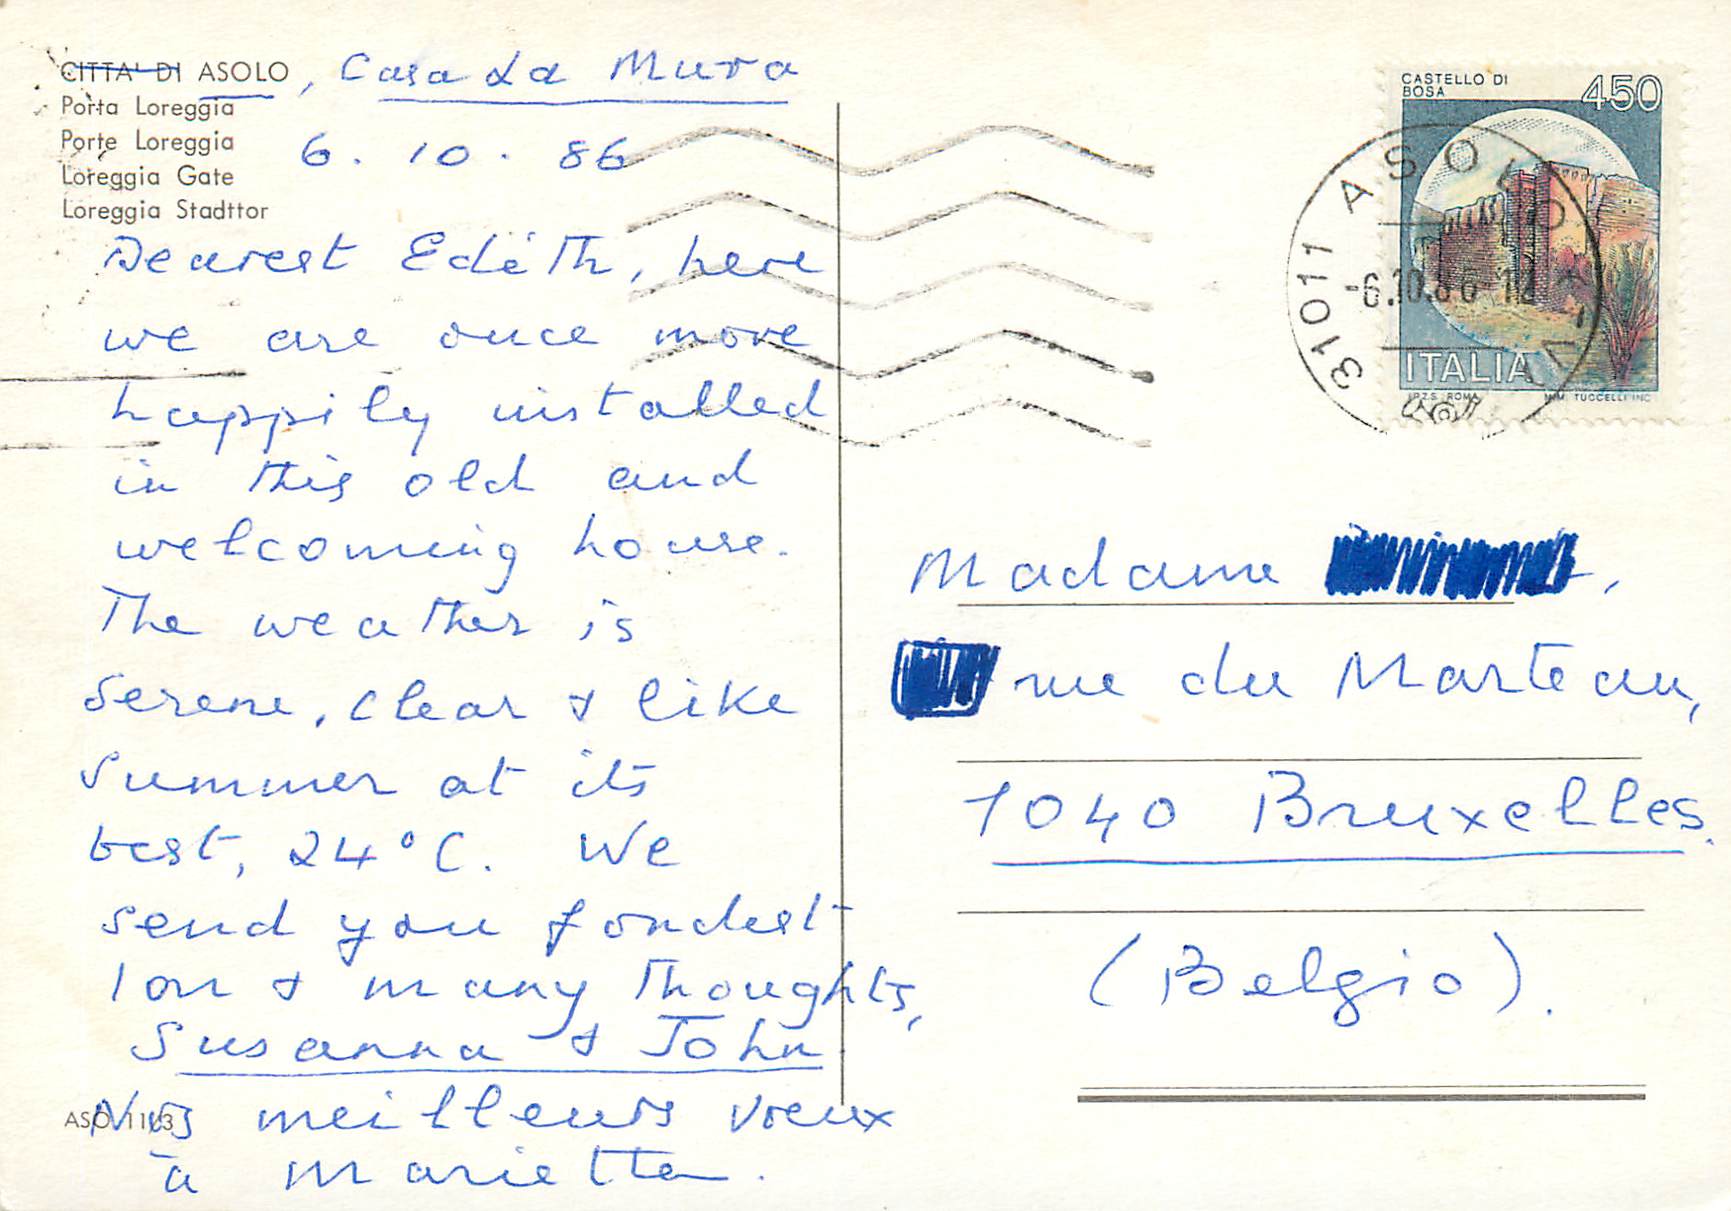 CITTA' DI ASOLO, Casa La Mura
Porta Loreggia
Porte Loreggia
Loreggia Gate
Loreggia Stadttor
6.10.86
Dearest Edith, here
we are once more
happily installed
in this old and
welcoming house.
The weather is
serene, clear & like
summer at its
best, 24°C. We
send you fondest
love & many thoughts,
Susanna & John
Nos meilleurs voeux
à Marietta.
ASO 11
CASTELLO DI
BOSA
450
ITALIA
I.P.Z.S. ROMA
M.M. TUCCELLI INC.
31011 ASOLO
-6.10.86 12
Madame
rue du Marteau,
1040 Bruxelles.
(Belgio).